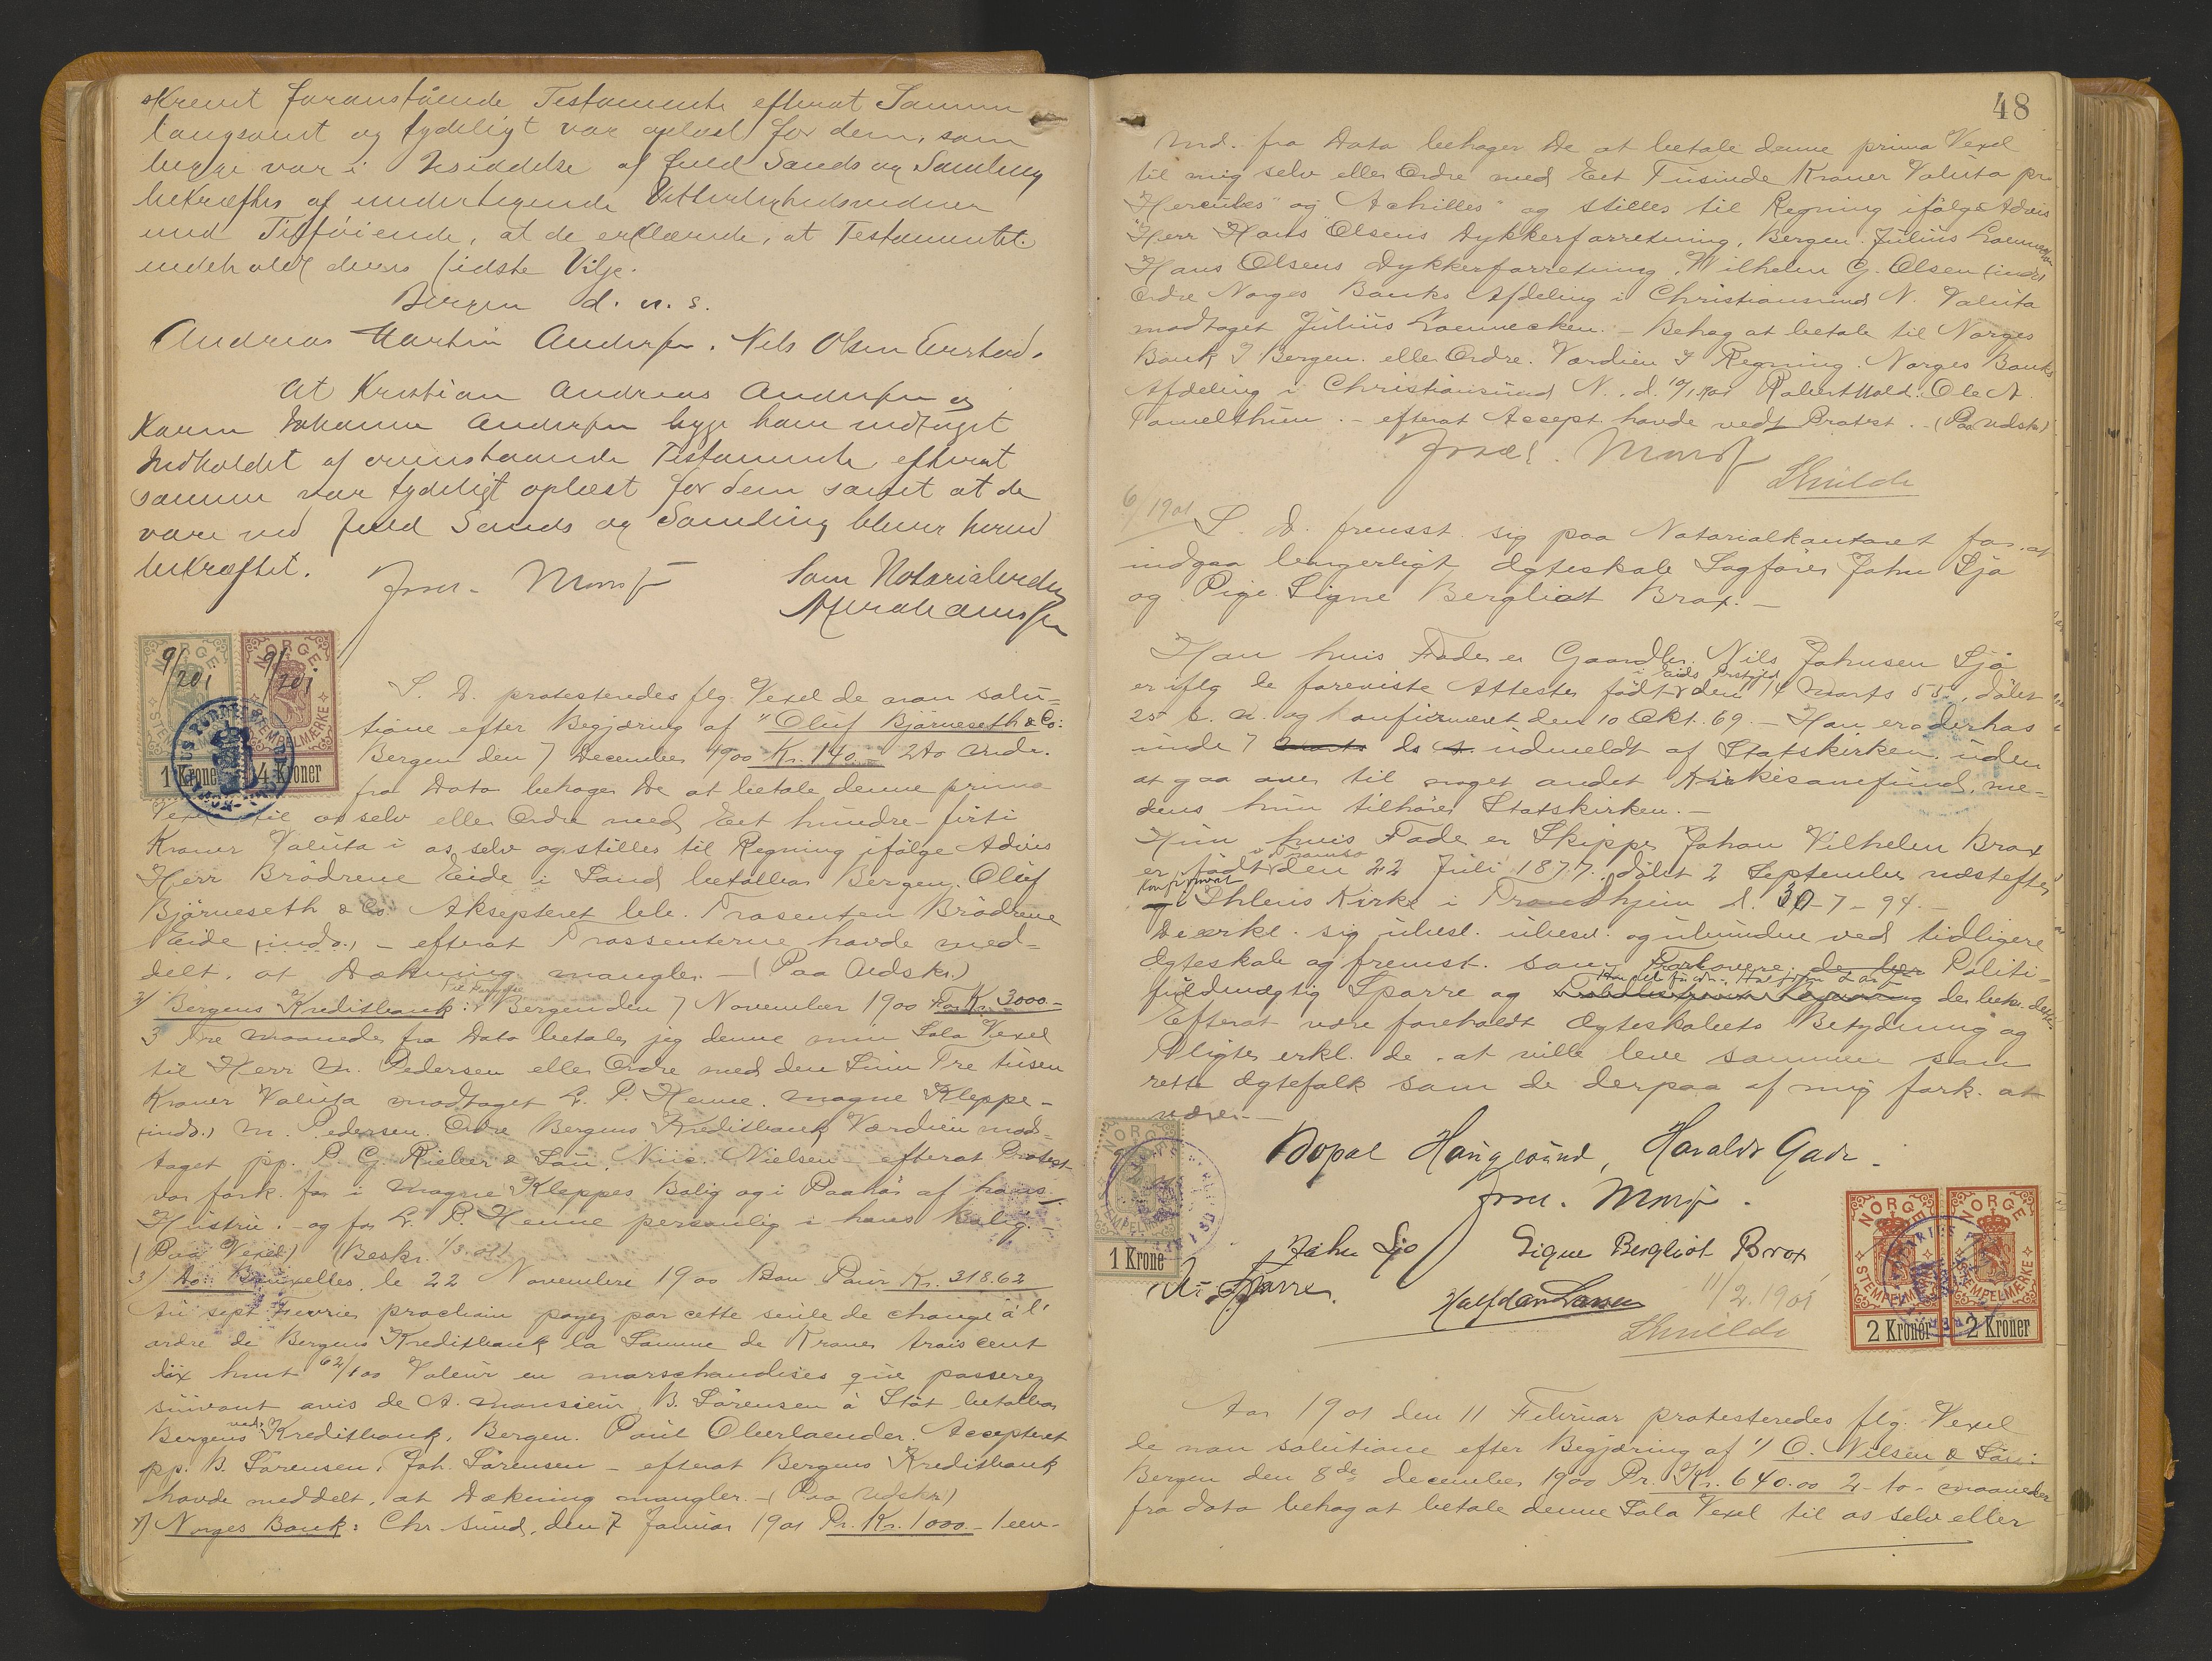 skrevet foranstående Testamente efterat Samme
langsomt og tydeligt var oplæst for dem, som
begge var i Besiddelse af fuld Sands og Samling
bekræftes af undertegnede Vitterlighedsvidner
med Tilføiende, at de erklærede, at Testamentet
indeholdt deres sidste Vilje.
Bergen d. u. s.
Andreas Martin Andersen. Nils Olsen
At Kristian Andreas Andersen og
Karen Johanne Andersen begge have vedtaget
Indholdet af ovenstaaende Testamente efterat
samme var tydeligt oplæst for dem samt at de
vare ved fuld Sands og Samling bliver herved
bekræftet.
Som Notarialvidne
Abrahamsen
9/2 01 9/2 01
NORGE NORGE
STEMPELMÆRKE STEMPELMÆRKE
1 Krone 4 Kroner
S. D. protesteredes flg. Vexel de non solu-
tione efter Begjæring af 1/ Oluf Björneseth & Co:
Bergen den 7 December 1900 Kr. 140.- 2 to Mdr.
fra Dato behager De at betale denne prima
Vexel til os selv eller Ordre med Eet hundre firti
Kroner Valuta i os selv og stilles til Regning ifølge Advis
Herr Brödrene Eide i Sand betalbar Bergen. Oluf
Björneseth & Co. Aksepteret Trasenten Brödrene
Eide (indo.) - efterat Trassenterne havde med-
delt, at Dækning mangler. - (Paa Udskr.)
2/ Bergens Kreditbank: Bergen den 7 November 1900 For Kr. 3000.-
3 Tre maaneder fra Dato betaler jeg denne min Sola Vexel
til Herr M. Pedersen eller Ordre med den Sum Tre tusen
Kroner Valuta modtaget L. P. Henne. Magne Kleppe -
(indo.) M. Pedersen. Ordre Bergens Kreditbank Værdien mod-
taget pp. P. G. Rieber & Sön, Nielsen - efterat Protest
var fork. for i Magne Kleppes Bolig og i Paahör af hans
Hustru. - og for L. P. Henne personlig i hans Bolig. -
(Paa Vexel) (Beskr. 1/3. 01)
3/ do: Bruxelles, le 22 Novembre 1900 Bon Pour Kr. 318.62
Au sept Fevrier prochain payez par cette seule de change à l'
ordre de Bergens Kreditbank la Somme de Kroner trois cent
dix huit 62/100 Valeur en marschandises que passerez
suivant avis de A. monsieur B. Sörensen à Stöt betalbar
ved
Bergens Kreditbank, Bergen. Paul Oberlaender. Accepteret
pp. B. Sörensen, Joh. Sörensen - efterat Bergens Kreditbank
havde meddelt, at Dækning mangler. - (Paa Udskr)
4/ Norges Bank: Chr. sund, den 7 Januar 1901 Pr. Kr. 1000.- 1 een-
48
Md. fra Dato behager De at betale denne prima Vexel
til mig selv eller Ordre med Eet Tusinde Kroner Valuta pr.
"Hercules" og "Achilles" og stilles til Regning ifølge Advis
Herr Hans Olsens Dykkerforretning, Bergen. Julius Loennecken
Hans Olsens Dykkerforretning, Wilhelm G. Olsen (indo)
Ordre Norges Banks Afdeling i Christiansund N. Valuta
modtaget Julius Loennecken. - Behag at betale til Norges
Bank I Bergen. eller Ordre. Værdien I Regning. Norges Banks
Afdeling i Christiansund N. d. 10/1 1901 Robert Ole A.
- efterat Accept. havde vedt. Protest. - (Paa Udskr)
6/ 1901
S. D. fremst. sig paa Notarialkontoret for at
indgaa borgerligt Ægteskab Sagförer John Sjö
og Pige Signe Bergliot Brox. -
Han hvis Fader er Gaardbr. Nils Johnsen Sjö
i Eids Prstgjld
er iflg. de foreviste Attester født den 14 Marts 55, döbt
25 s. M. og konfirmeret den 10 Okt. 69. - Han er derhos
under 7 ds. udmeldt af Statskirken uden
at gaa over til noget andet Kirkesamfund, me-
dens hun tilhörer Statskirken. -
Hun hvis Fader er Skipper Johan Vilhelm Brox
i Tromsø
er født den 22 Juli 1877. döbt 2 September næstefter
konfirmeret
i Ihlens Kirke i Trondhjem d. 30-7-94. -
De erkl. sig ubesl. ubesv. og ubundne ved tidligere
Ægteskab og fremst. som Forlovere Politi-
fuldmægtig Sparre og der bekr. dette
Efterat være foreholdt Ægteskabets Betydning og
Pligter erkl. de at ville leve sammen som
rette Ægtefolk som de derpaa af mig fork. at
være. -
Harald Gade.
NORGE
STEMPELMÆRKE
1 Krone
John Sjö Signe Bergliot Brox
Sparre
Halfdan Larsen
11/2. 1901
NORGE NORGE
STEMPELMÆRKE STEMPELMÆRKE
2 Kroner 2 Kroner
Aar 1901 den 11 Februar protesteredes flg. Vexel
de non solutione efter Begjæring af 1/ O. Nilsen & Sön:
Bergen den 8de December 1900 Pr. Kr. 640.00 2 - to - maaneder
fra dato behag at betale denne Sola Vexel til os selv eller